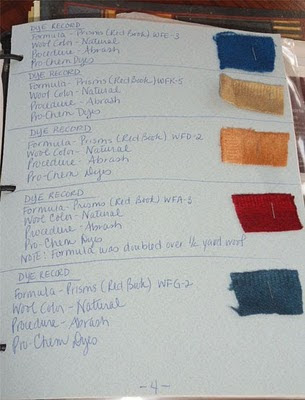 DYE RECORD
Formula - Prisms (Red Book) WFE-3
Wool Color - Natural
Procedure - Abrash
Pro-Chem Dyes
DYE RECORD
Formula - Prisms (Red Book) WFK-5
Wool Color - Natural
Procedure - Abrash
Pro Chem Dyes
DYE RECORD
Formula - Prisms (Red Book) WFD-2
Wool Color - Natural
Procedure - Abrash
Pro-Chem Dyes
DYE RECORD
Formula - Prisms (Red Book) WFA-5
Wool Color - Natural
Procedure - Abrash
Pro-Chem Dyes
NOTE: Formula was doubled over ½ yard wool
DYE RECORD
Formula - Prisms (Red Book) WFG-2
Wool Color - Natural
Procedure - Abrash
Pro-Chem Dyes
- 4 -